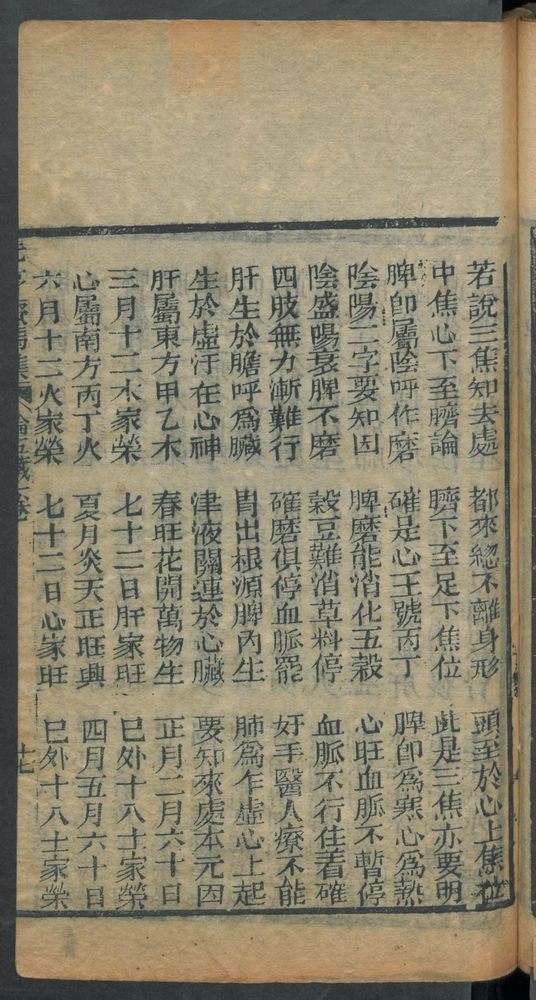 若說三焦知去處 都來緫不離身形 頭至於心上焦位
中焦心下至臍論 臍下至足下焦位 此是三焦亦要明
脾卽屬陰呼作磨 確是心王號丙丁 脾卽為寒心為熱
陰陽二字要知因 脾磨能消化五穀 心旺血脈不暫停
陰盛陽衰脾不磨 穀豆難消草料停 血脈不行住着確
四肢無力漸難行 確磨俱停血脈罷 好手醫人療不能
肝生於膽呼爲臟 胃出根源脾內生 肺爲乍虛心上起
生於虛汗在心神 津液關連於心臟 要知來處本元因
肝屬東方甲乙木 春旺花開萬物生 正月二月六十日
三月十二木家榮 七十二日肝家旺 巳外十八土家榮
心屬南方丙丁火 夏月炎天正旺興 四月五月六十日
六月十二火家榮 七十二日心家旺 巳外十八土家榮
集 論五臟 卷 十七